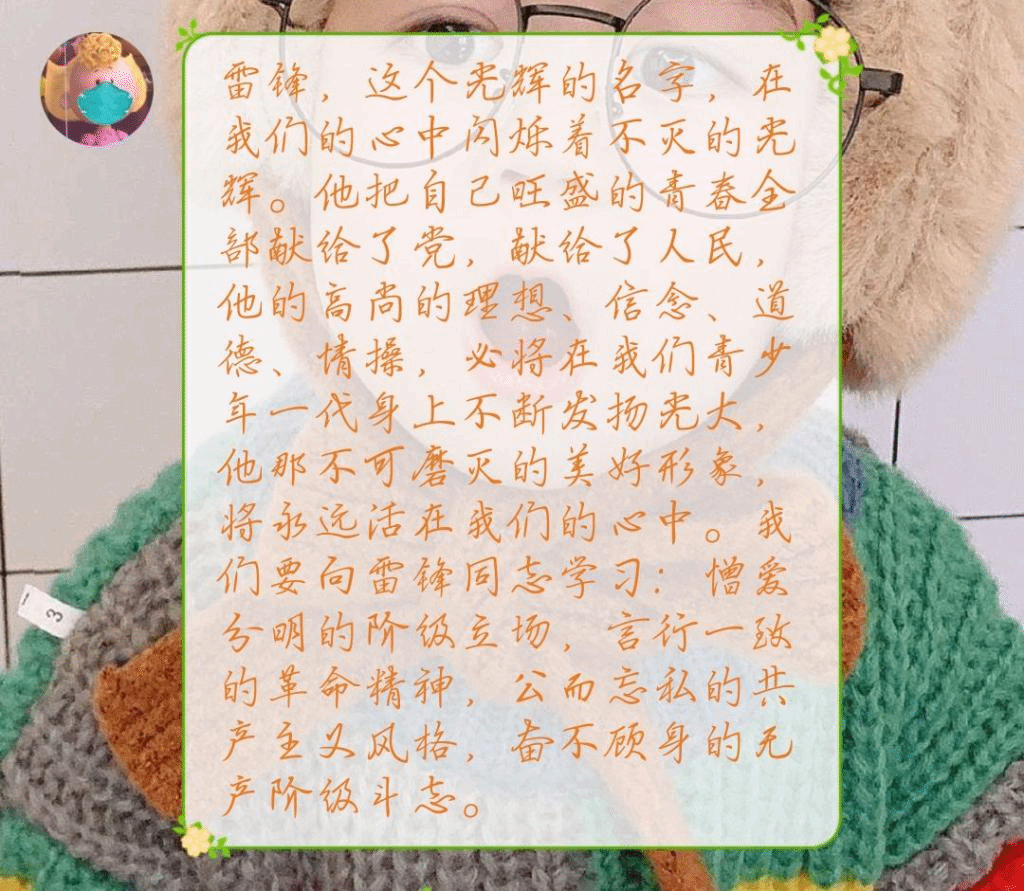 雷锋，这个光辉的名字，在
我们的心中闪烁着不灭的光
辉。他把自己旺盛的青春全
部献给了党，献给了人民，
他的高尚的理想、信念、道
德、情操，必将在我们青少
年一代身上不断发扬光大，
他那不可磨灭的美好形象，
将永远活在我们的心中。我
们要向雷锋同志学习：憎爱
分明的阶级立场，言行一致
的革命精神，公而忘私的共
产主义风格，奋不顾身的无
产阶级斗志。
3